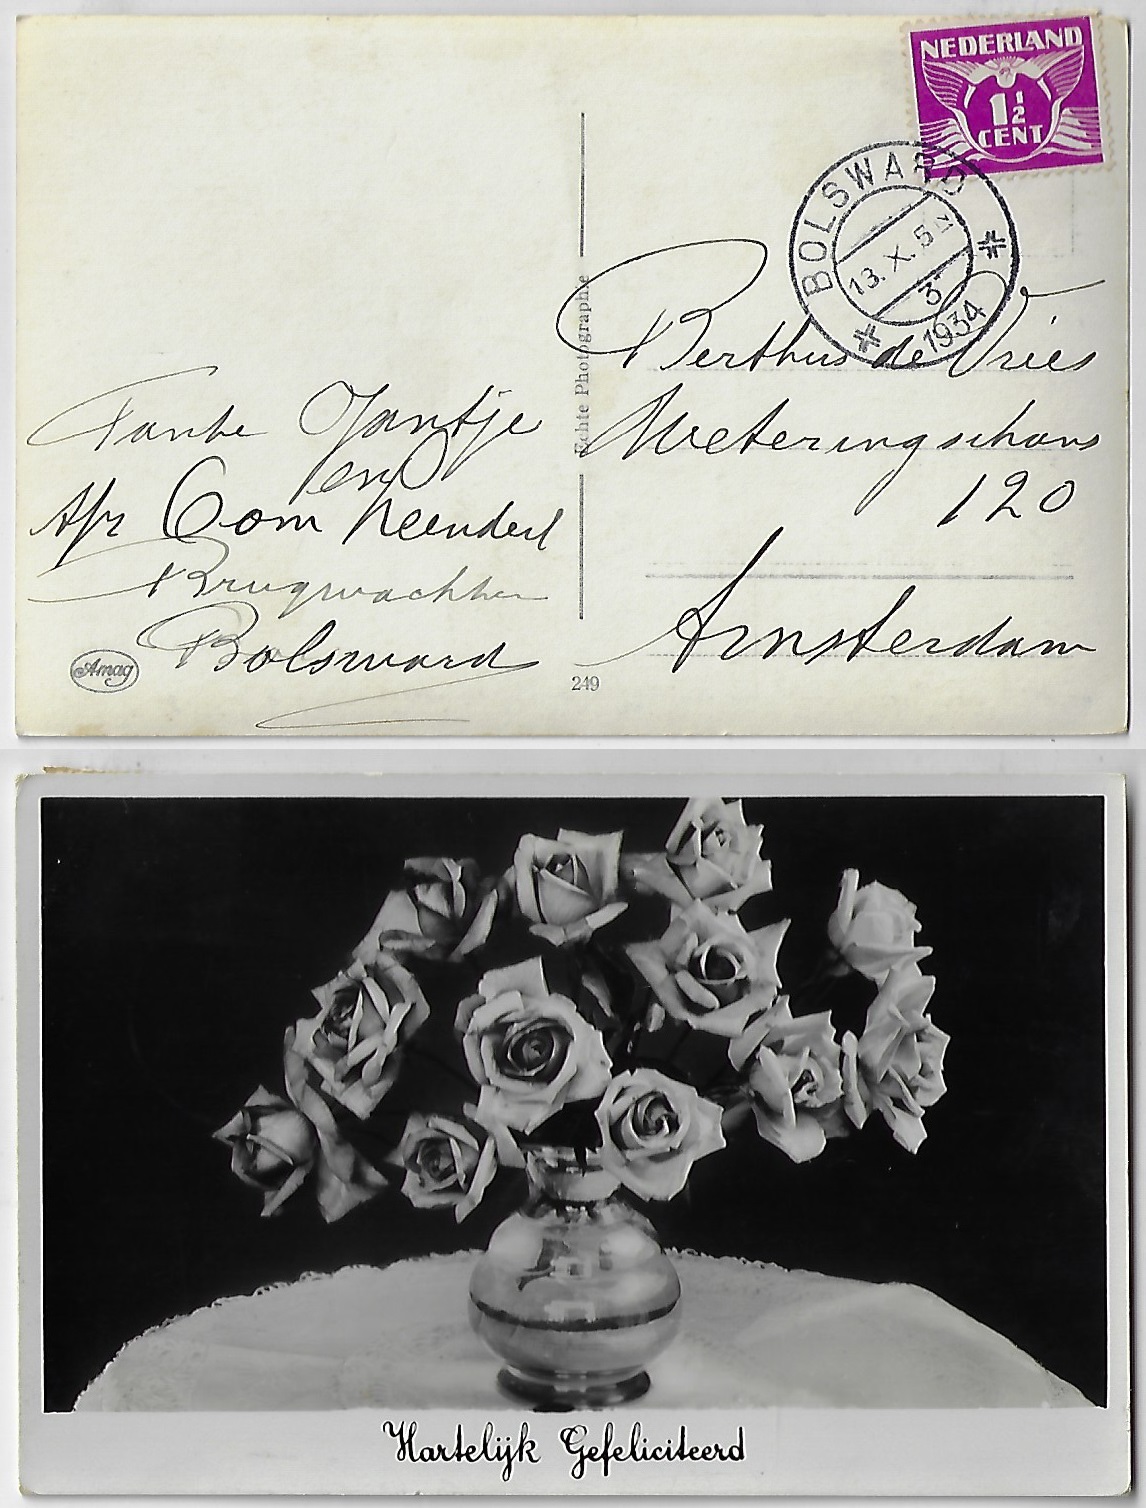 NEDERLAND
1½
CENT
BOLSWARD
13. X. 5
3
1934
Echte Photographie
Berthus de Vries
Weteringschans
120
Amsterdam
Tante Jantje
en
Afz Oom Leendert
Brugwachter
Bolsward
Amag
249
Hartelijk Gefeliciteerd